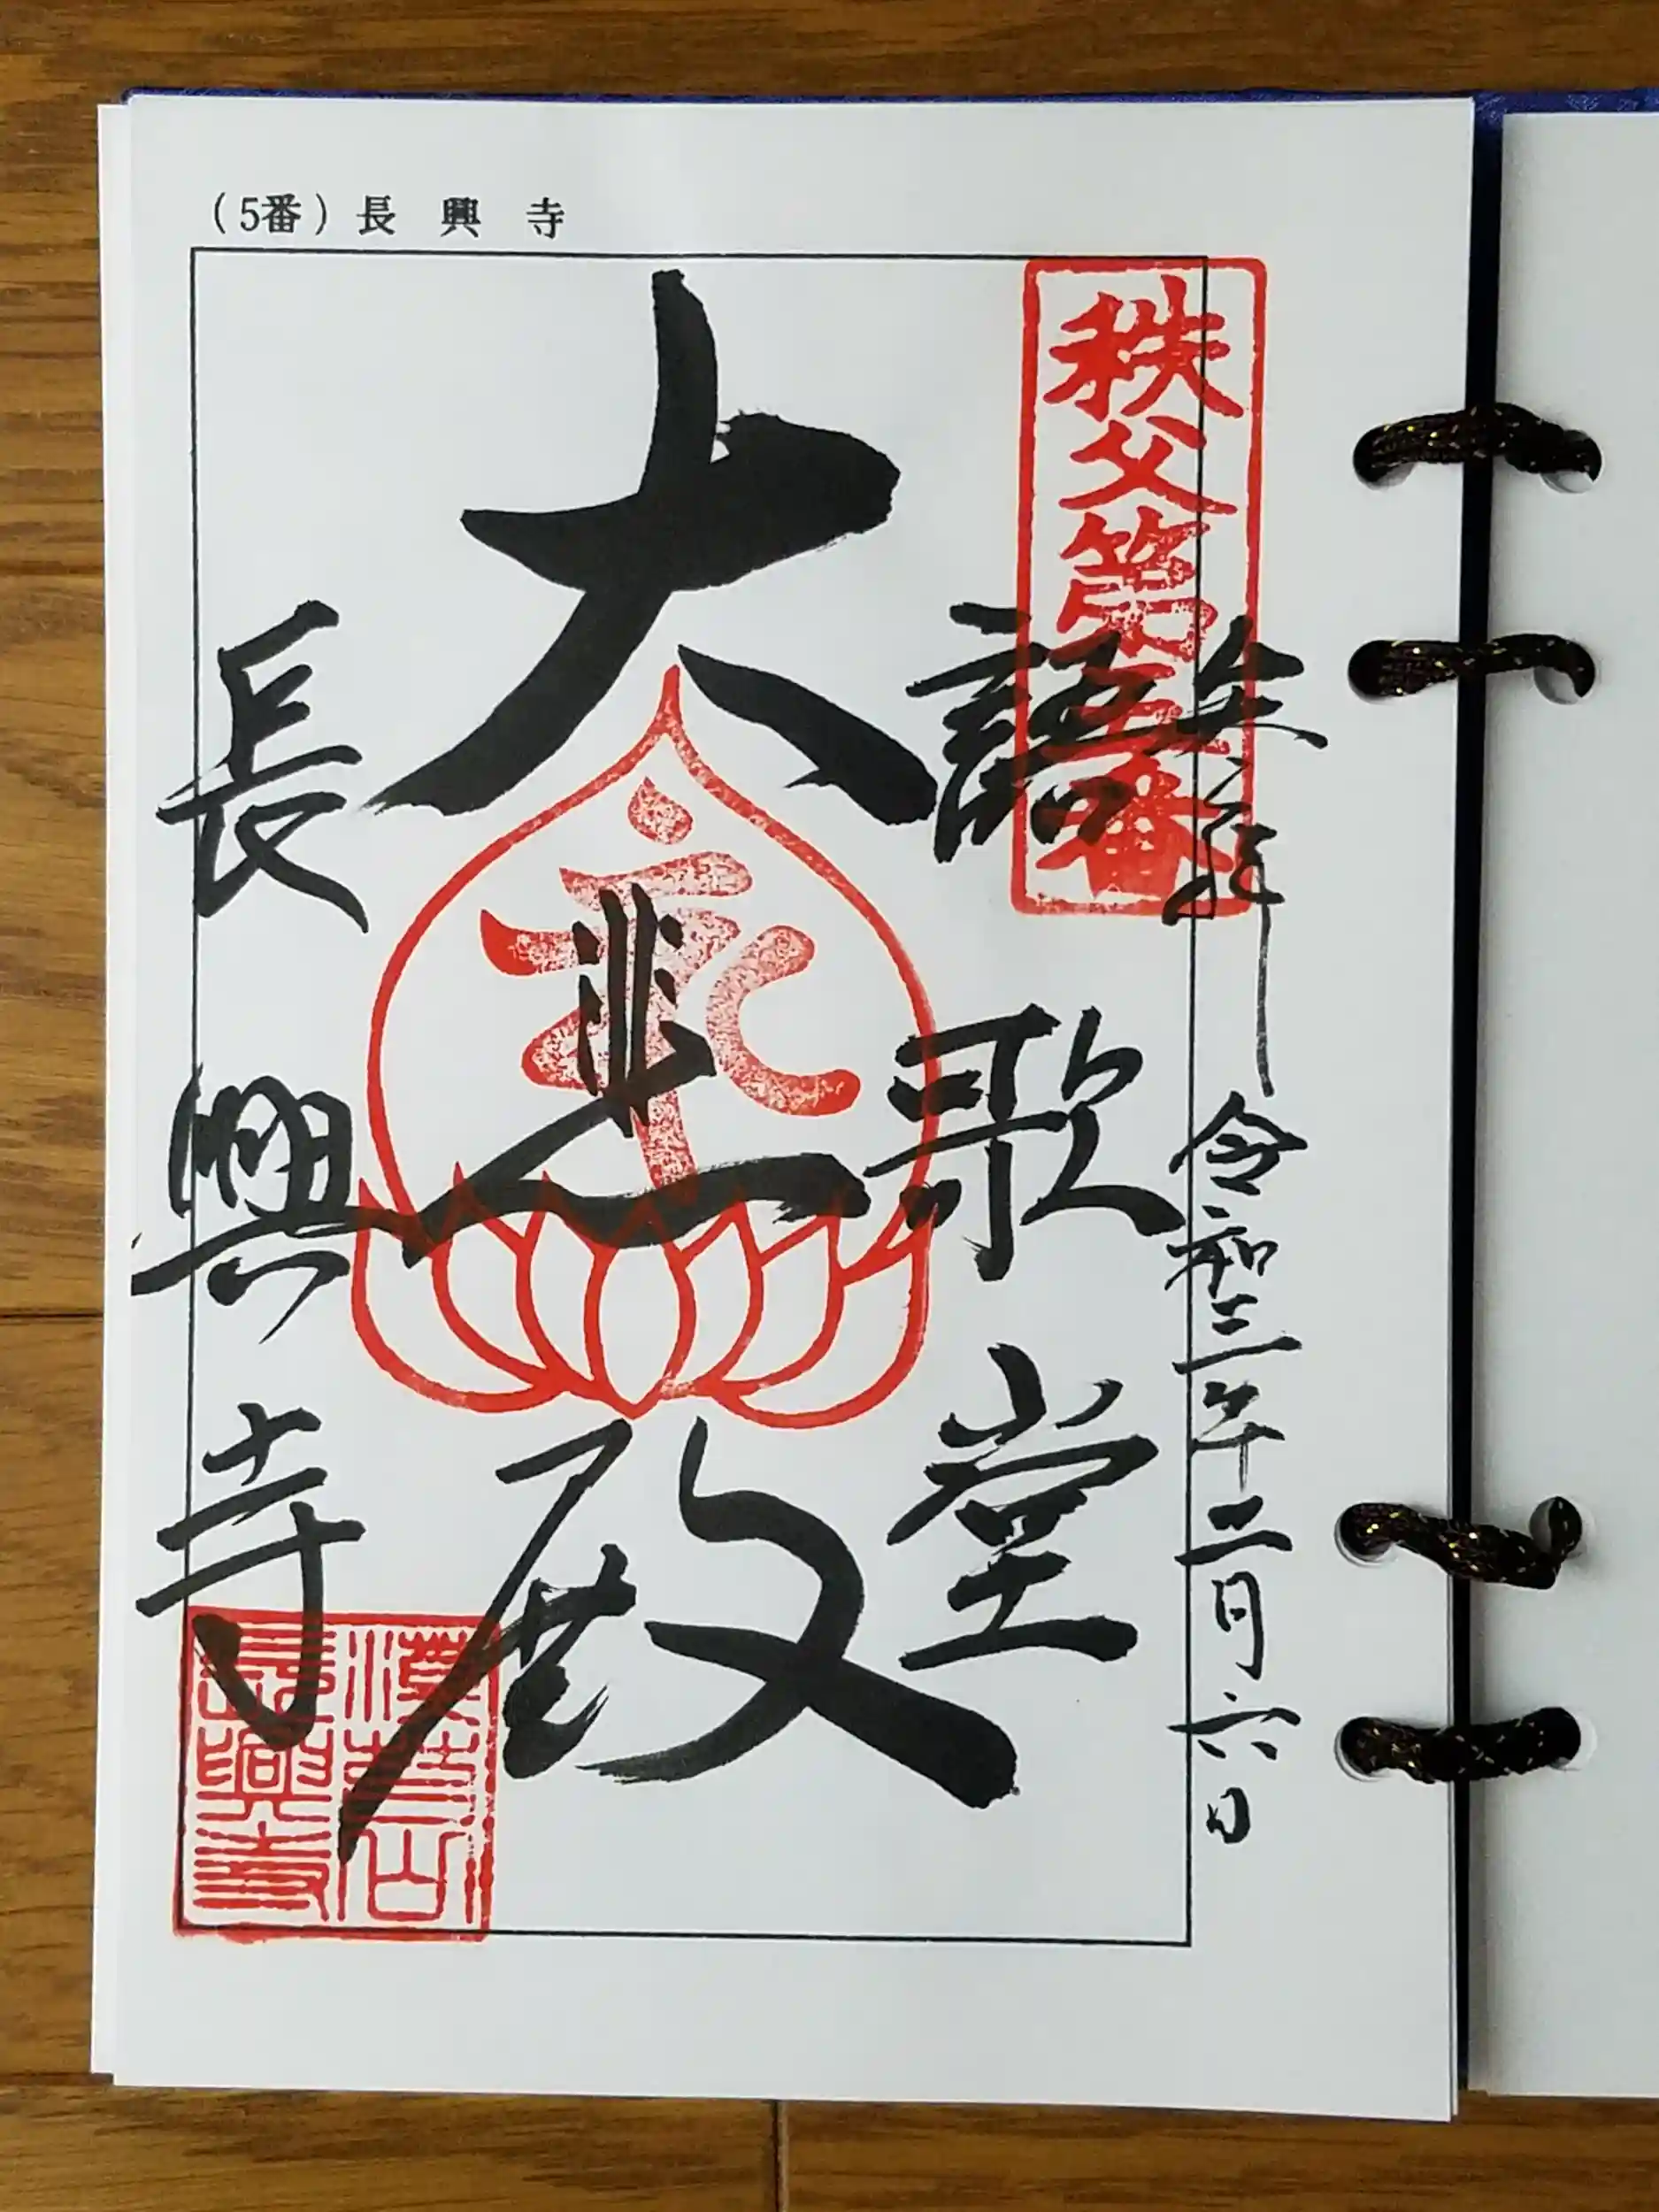 (5番) 長興寺
秩父第五番
奉拝
令和三年二月六日
語歌堂
大悲殿
長興寺
長興寺